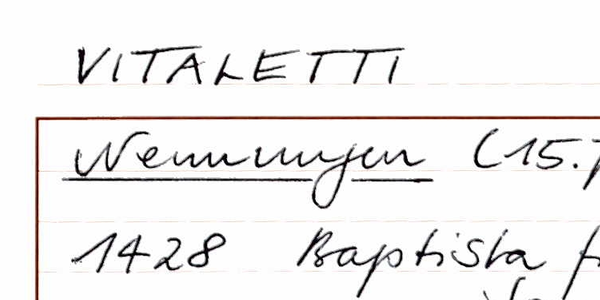 VITALETTI
Nennungen (15.
1428 Baptista